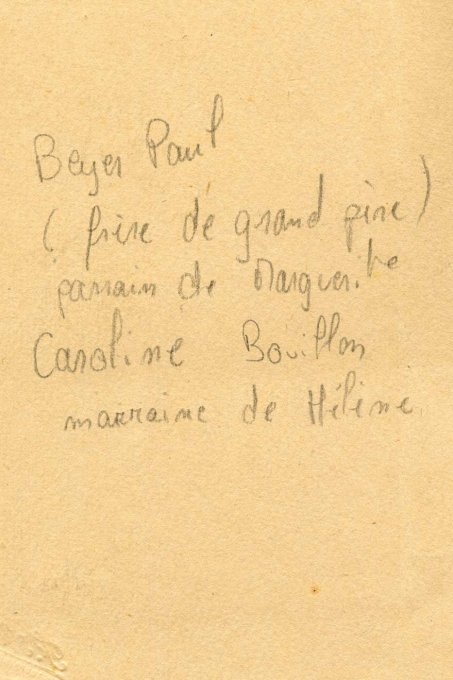 Beyer Paul
(frère de grand père)
parrain de Marguerite
Caroline Bouillon
marraine de Hélène